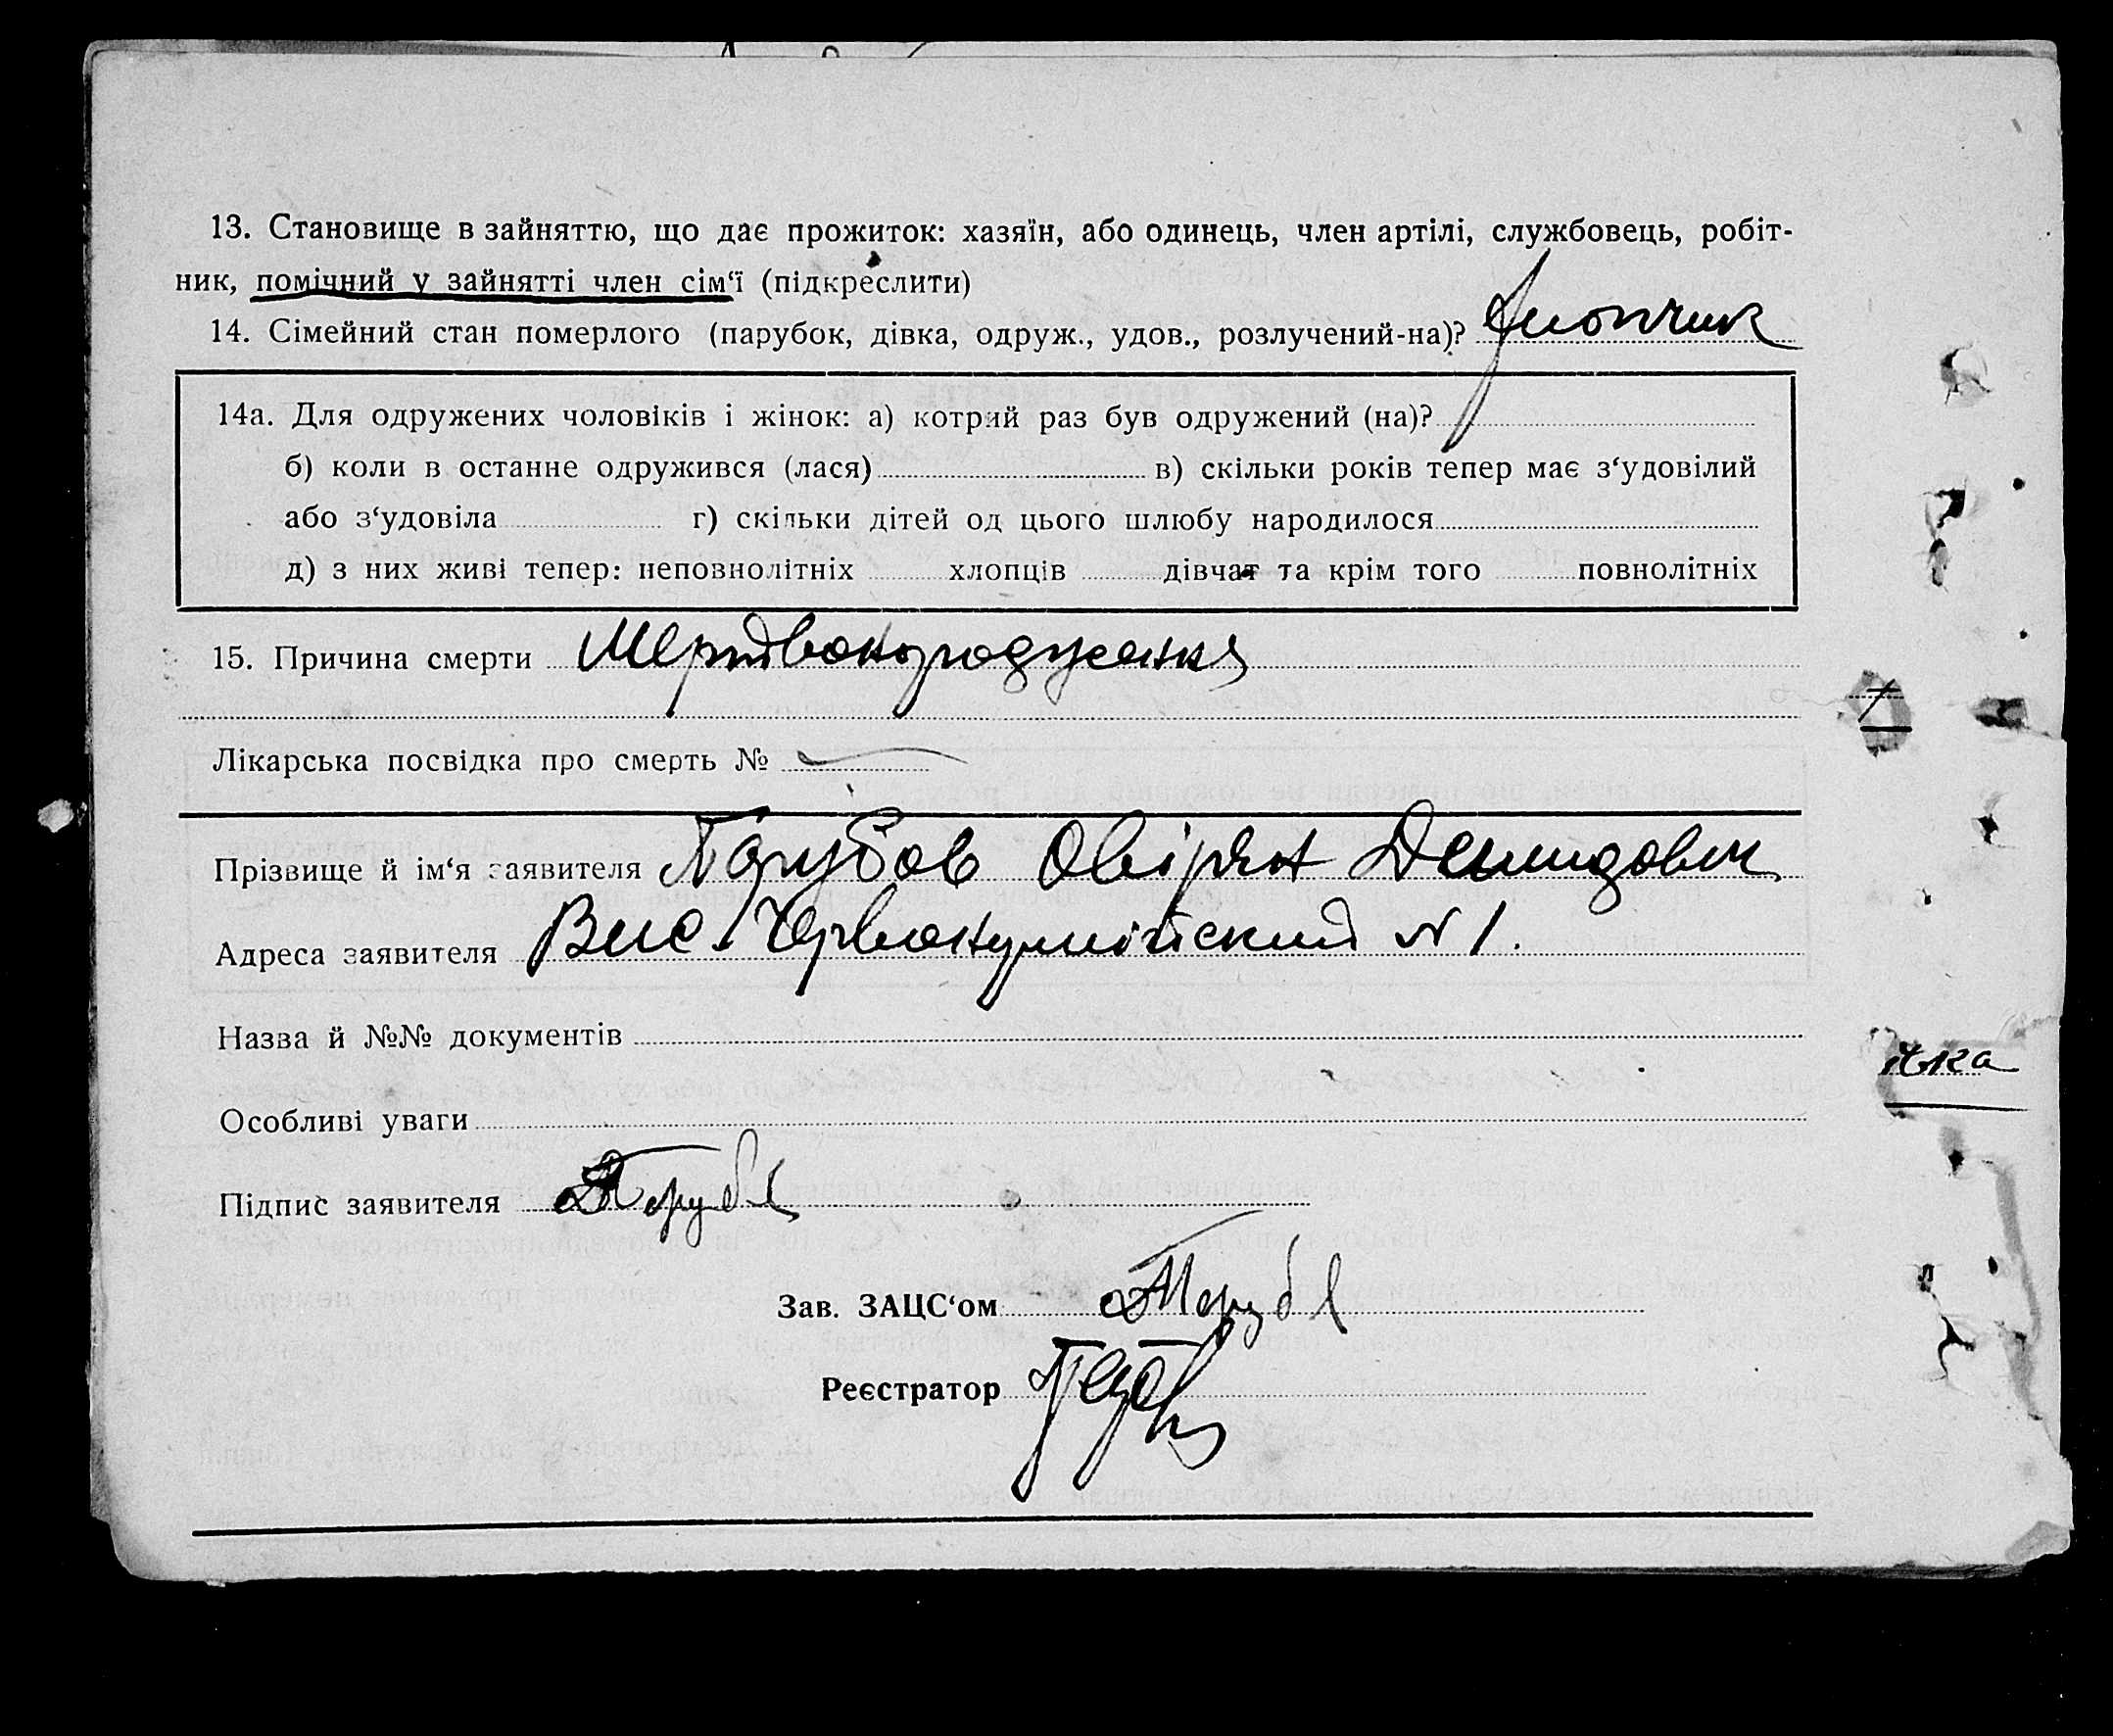 13. Становище в зайняттю, що дає прожиток: хазяїн, або одинець, член артілі, службовець, робіт-
ник, помічний у зайнятті член сім‘ї (підкреслити)
14. Сімейний стан померлого (парубок, дівка, одруж., удов., розлучений-на)? хлопчик
14а. Для одружених чоловіків і жінок: а) котрий раз був одружений (на)?
б) коли в останнє одружився (лася) в) скільки років тепер має з‘удовілий
або з‘удовіла г) скільки дітей од цього шлюбу народилося
д) з них живі тепер: неповнолітніх хлопців дівчат та крім того повнолітніх
15. Причина смерти Мертвонародження
Лікарська посвідка про смерть №
Прізвище й ім‘я заявителя Демидович
Адреса заявителя Вис. №1.
Назва й №№ документів
Особливі уваги
Підпис заявителя
Зав. ЗАЦС‘ом
Реєстратор